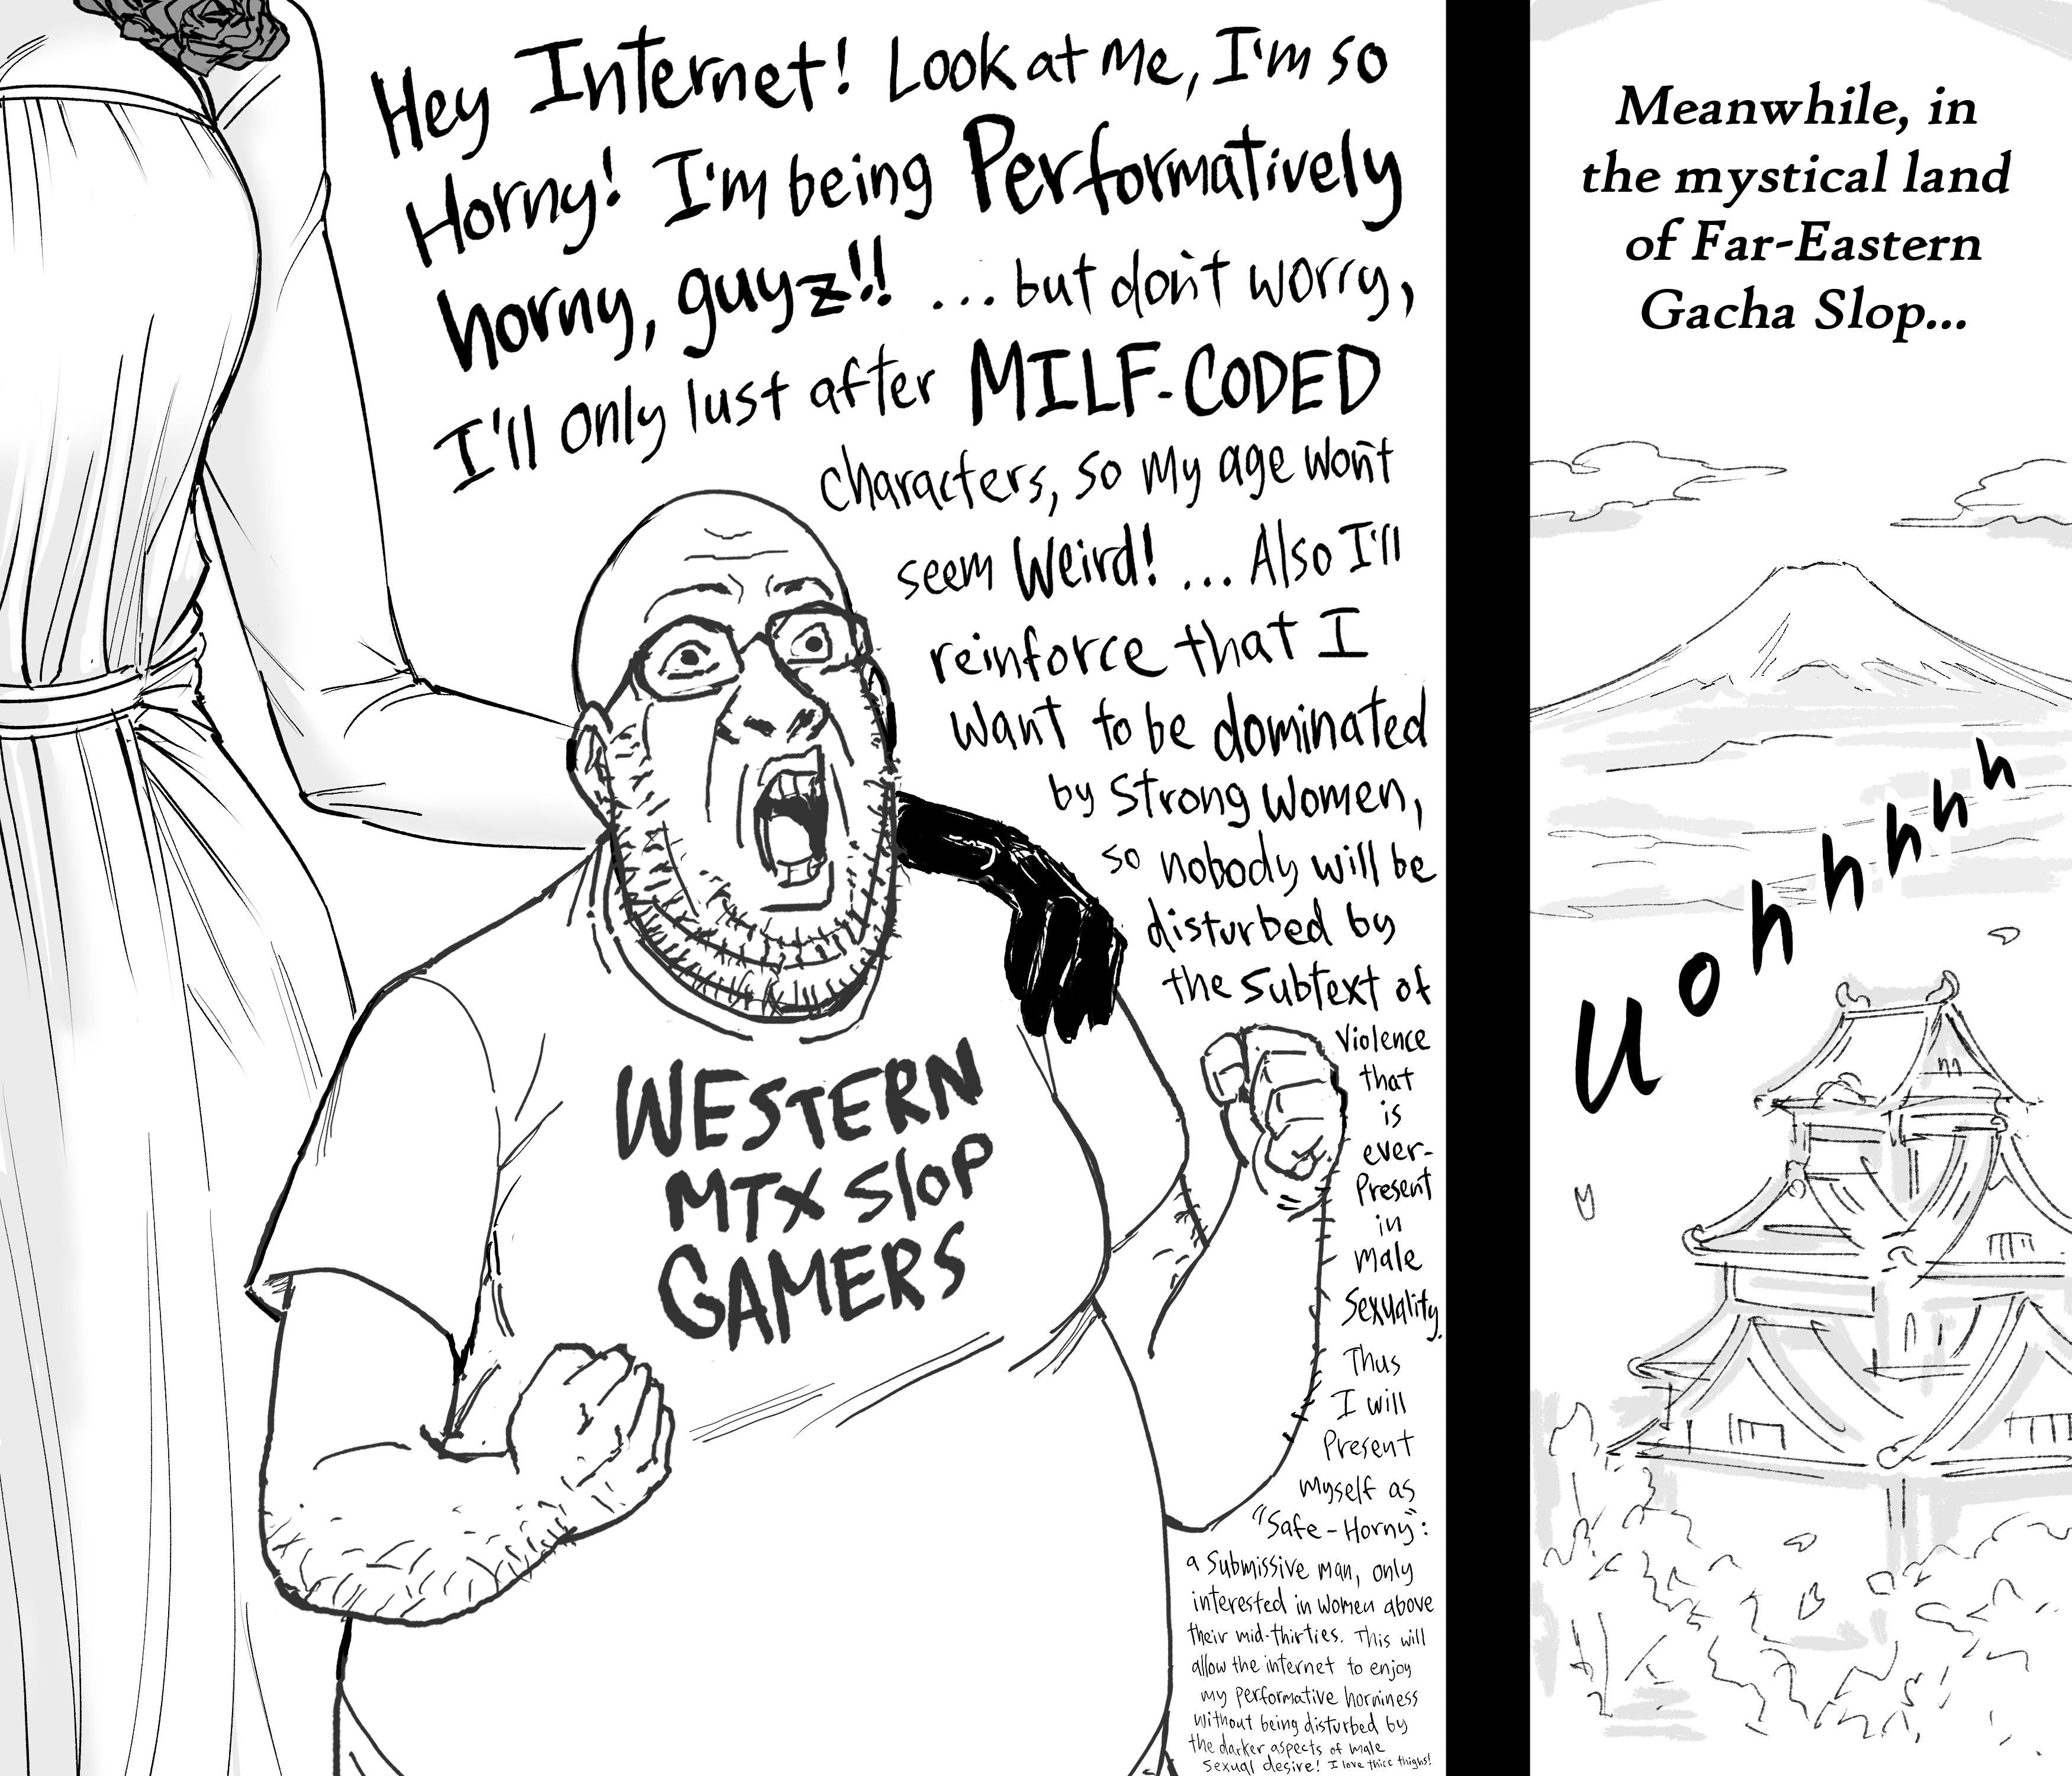 Hey Internet! Look at Me, I'm so
Horny! I'm being Performatively
horny, guyz!! ...but don't worry,
I'll only lust after MILF-CODED
characters, so my age won't
seem Weird! ... Also I'll
reinforce that I
want to be dominated
by strong women,
so nobody will be
disturbed by
the subtext of
Violence
that
is
ever-
Present
in
male
Sexuality.
Thus
I will
Present
myself as
"Safe-Horny":
a submissive man, only
interested in women above
their mid-thirties. This will
allow the internet to enjoy
my performative horniness
without being disturbed by
the darker aspects of male
sexual desire! I love thicc thighs!
WESTERN
MTX Slop
GAMERS
Meanwhile, in
the mystical land
of Far-Eastern
Gacha Slop...
Uohhhhh